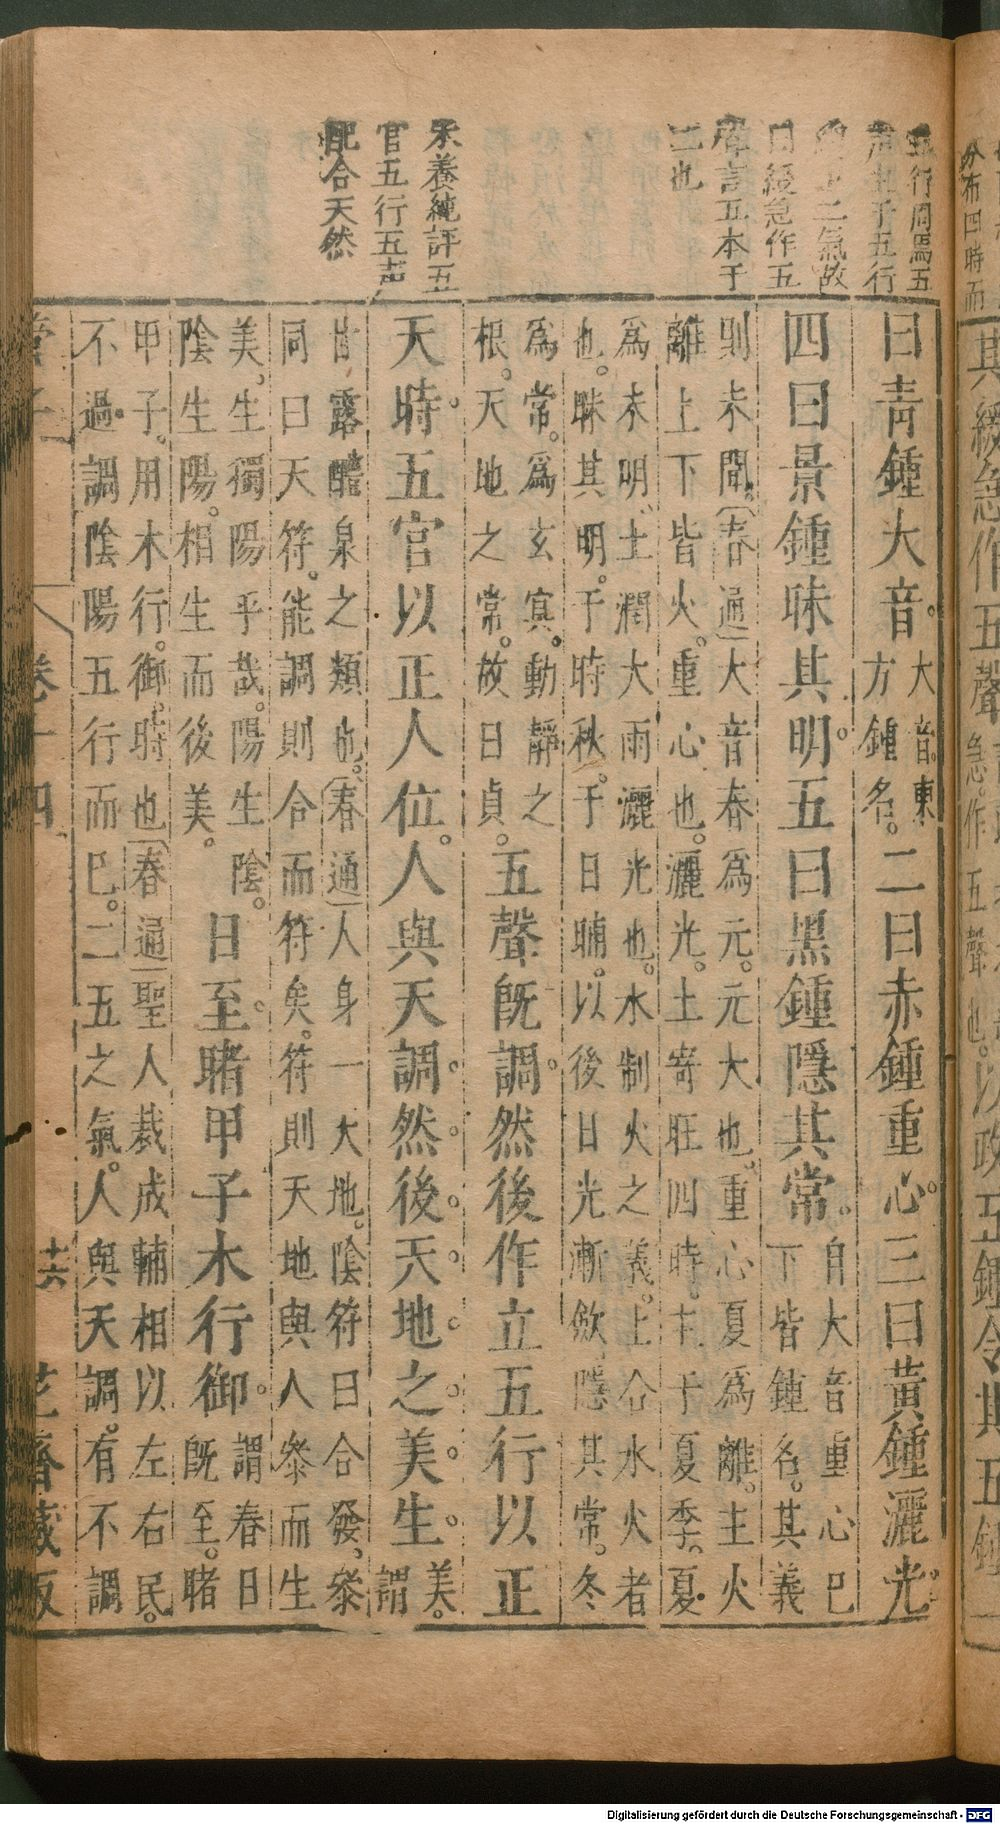 行周焉五
子五行
二氣故
曰緩急作五
聲言五本于
二也
朱養純評五
官五行五声
配合天然
曰青鍾大音。大音。東方鍾名。二曰赤鍾重心。三曰黃鍾灑光。
四曰景鍾昧其明。五曰黑鍾隱其常。自大音重心已下皆鍾名。其義
則未聞。(春通)大音春為元。元大也。重心夏為離。主火
離上下皆火。重心也。灑光。土寄旺四時。主于夏季。夏
為未明、土潤大雨灑光也。水制火之義。上合水火者
也。昧其明。于時秋。于日晡。以後日光漸斂隱其常。冬
為常。為玄冥。動靜之
根。天地之常。故曰貞。五聲旣調。然後作立五行以正
天時。五官以正人位。人與天調。然後。天地之美生。美。謂
甘露醴泉之類也。(春通)人身一大地。陰符曰合發、叅
同曰天符。能調則合而符矣。符則天地與人叅而生
美、生獨陽乎哉。陽生陰。
陰生陽。相生而後美。日至。睹甲子木行御。謂春日旣至。睹
甲子。用木行。御時也(春通)聖人裁成輔相以左右民。
不過調陰陽五行而已。二五之氣。人與天調。有不調
管子
卷十四
十六
花齋藏板
分布四時而
其緩急作五聲
急。作五聲也。以政五鍾令其五鍾一
Digitalisierung gefördert durch die Deutsche Forschungsgemeinschaft - DFG